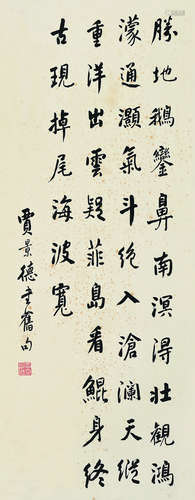 勝地鵝鑾鼻南溟得壯觀鴻
濛通灝氣斗絕入滄瀾天縱
重洋出雲疑菲島看鯤身終
古現掉尾海波寬
賈景德書舊句